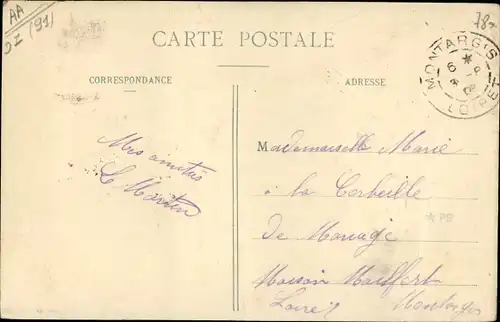 AA
DI (91)
78-
CARTE POSTALE
MONTARGIS
LOIRET
CORRESPONDANCE
ADRESSE
Mes amitiés
L. Martin
Mademoiselle Marie
à la Corbeille
de Mariage
Maison Malfert
Loiret Montargis
* PB